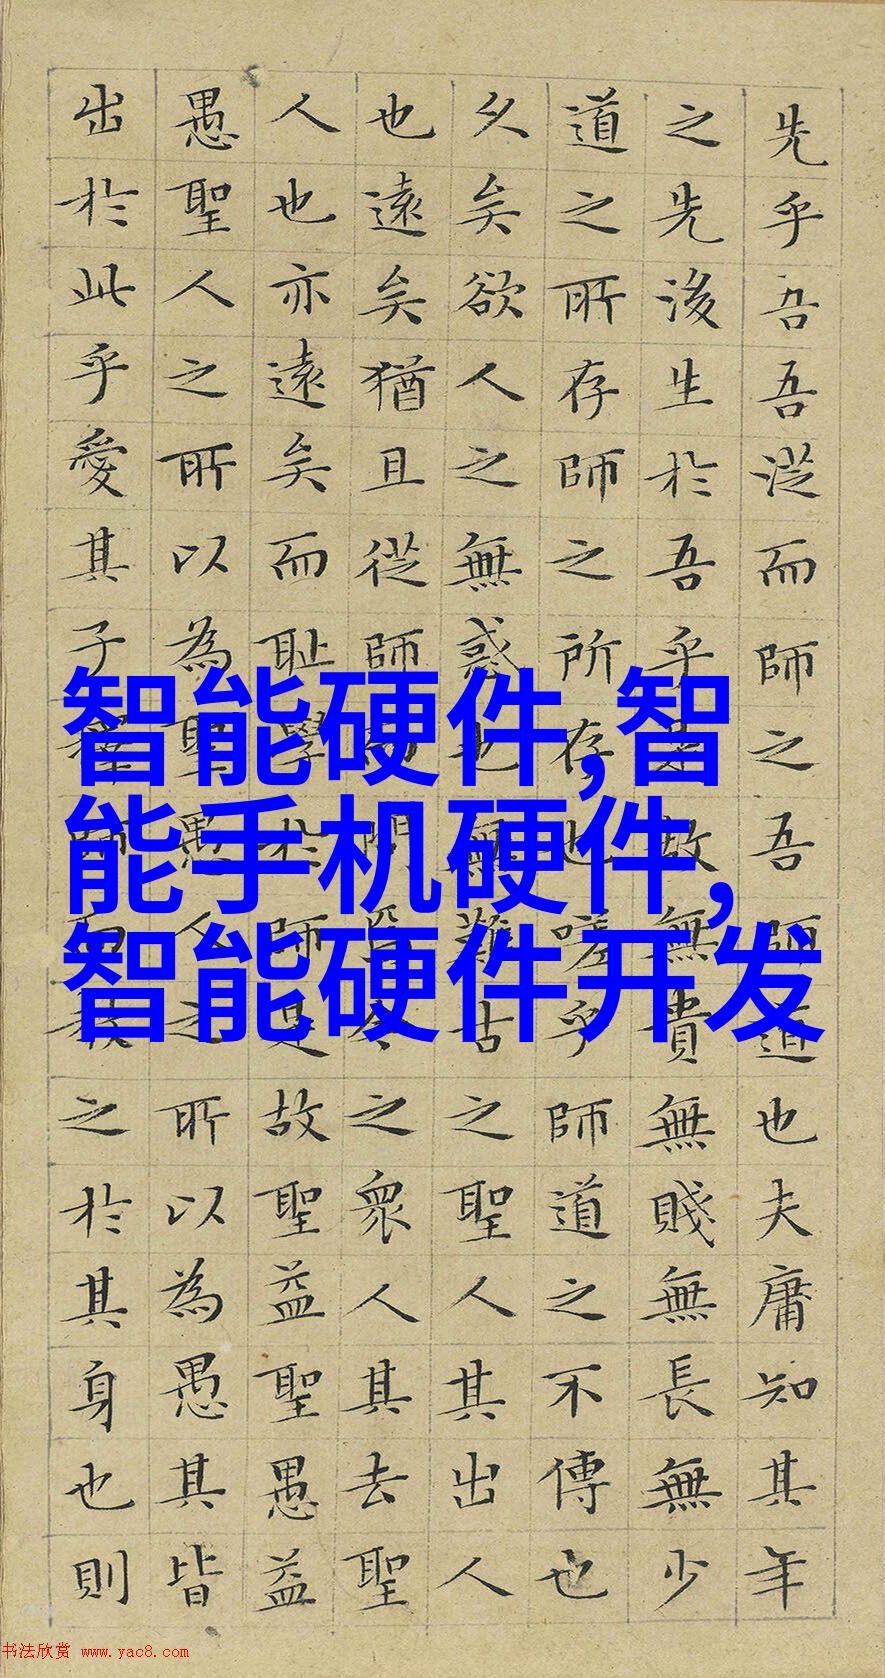 先乎吾吾從而師之吾師道也夫庸知其年
之先後生於吾乎是故無貴無賤無長無少
道之所存師之所存也嗟乎師道之不傳也
久矣欲人之無惑也無難古之聖人其出人
也遠矣猶且從師而問焉今之眾人其去聖
人也亦遠矣而恥學於師是故聖益聖愚益
愚聖人之所以為聖愚人之所以為愚其皆
出於此乎愛其子擇師而教之於其身也則
智能硬件,智
能手机硬件,
智能硬件开发
书法欣赏 www.yac8.com